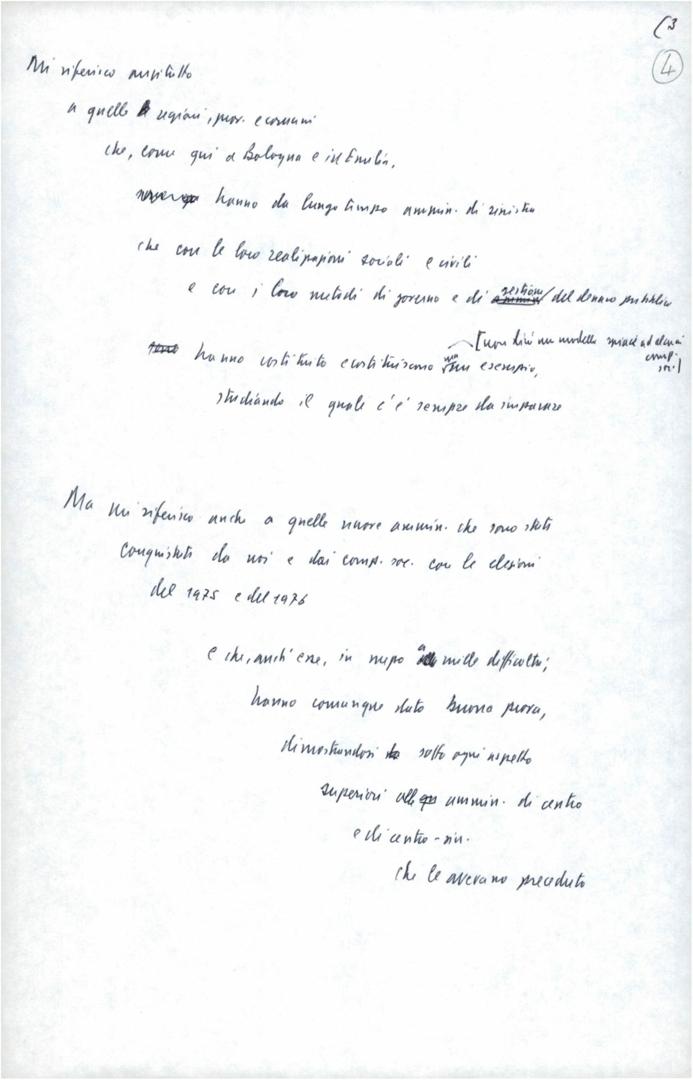 (3
4
Mi riferisco anzitutto
a quelle regioni, prov. e comuni
che, come qui a Bologna e in Emilia,
hanno da lungo tempo ammin. di sinistra
che con le loro realizzazioni sociali e civili
e con i loro metodi di governo e di gestione del denaro pubblico
[non dirò un modello spiace ad alcuni
comp.
hanno costituito e costituiscono un esempio,
soc.]
studiando il quale c'è sempre da imparare
Ma mi riferisco anche a quelle nuove ammin. che sono state
conquistate da noi e dai comp. soc. con le elezioni
del 1975 e del 1976
e che, anch'esse, in mezzo a mille difficoltà;
hanno comunque dato buona prova,
dimostrandosi sotto ogni aspetto
superiori ammin. di centro
e di centro-sin.
che le avevano preceduto